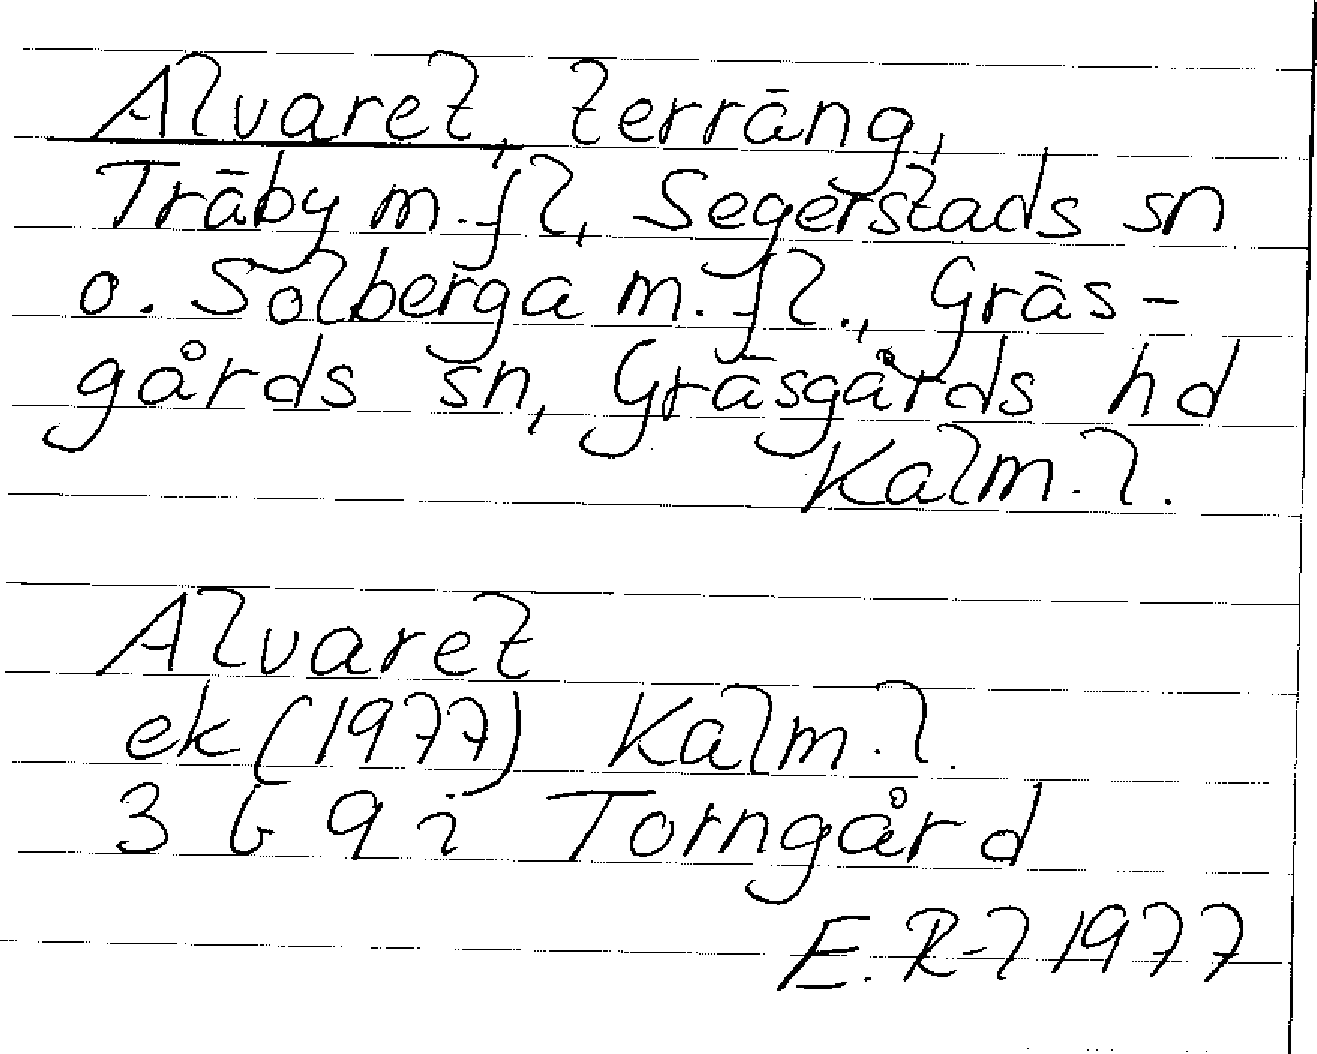 Alvaret, terräng,
Träby m.fl, Segerstads sn
o. Solberga m.fl., Gräs-
gårds sn, Gräsgårds hd
Kalm.l.
Alvaret
ek (1977) Kalm.l.
3 G 9 i Torngård
E.R-l 1977